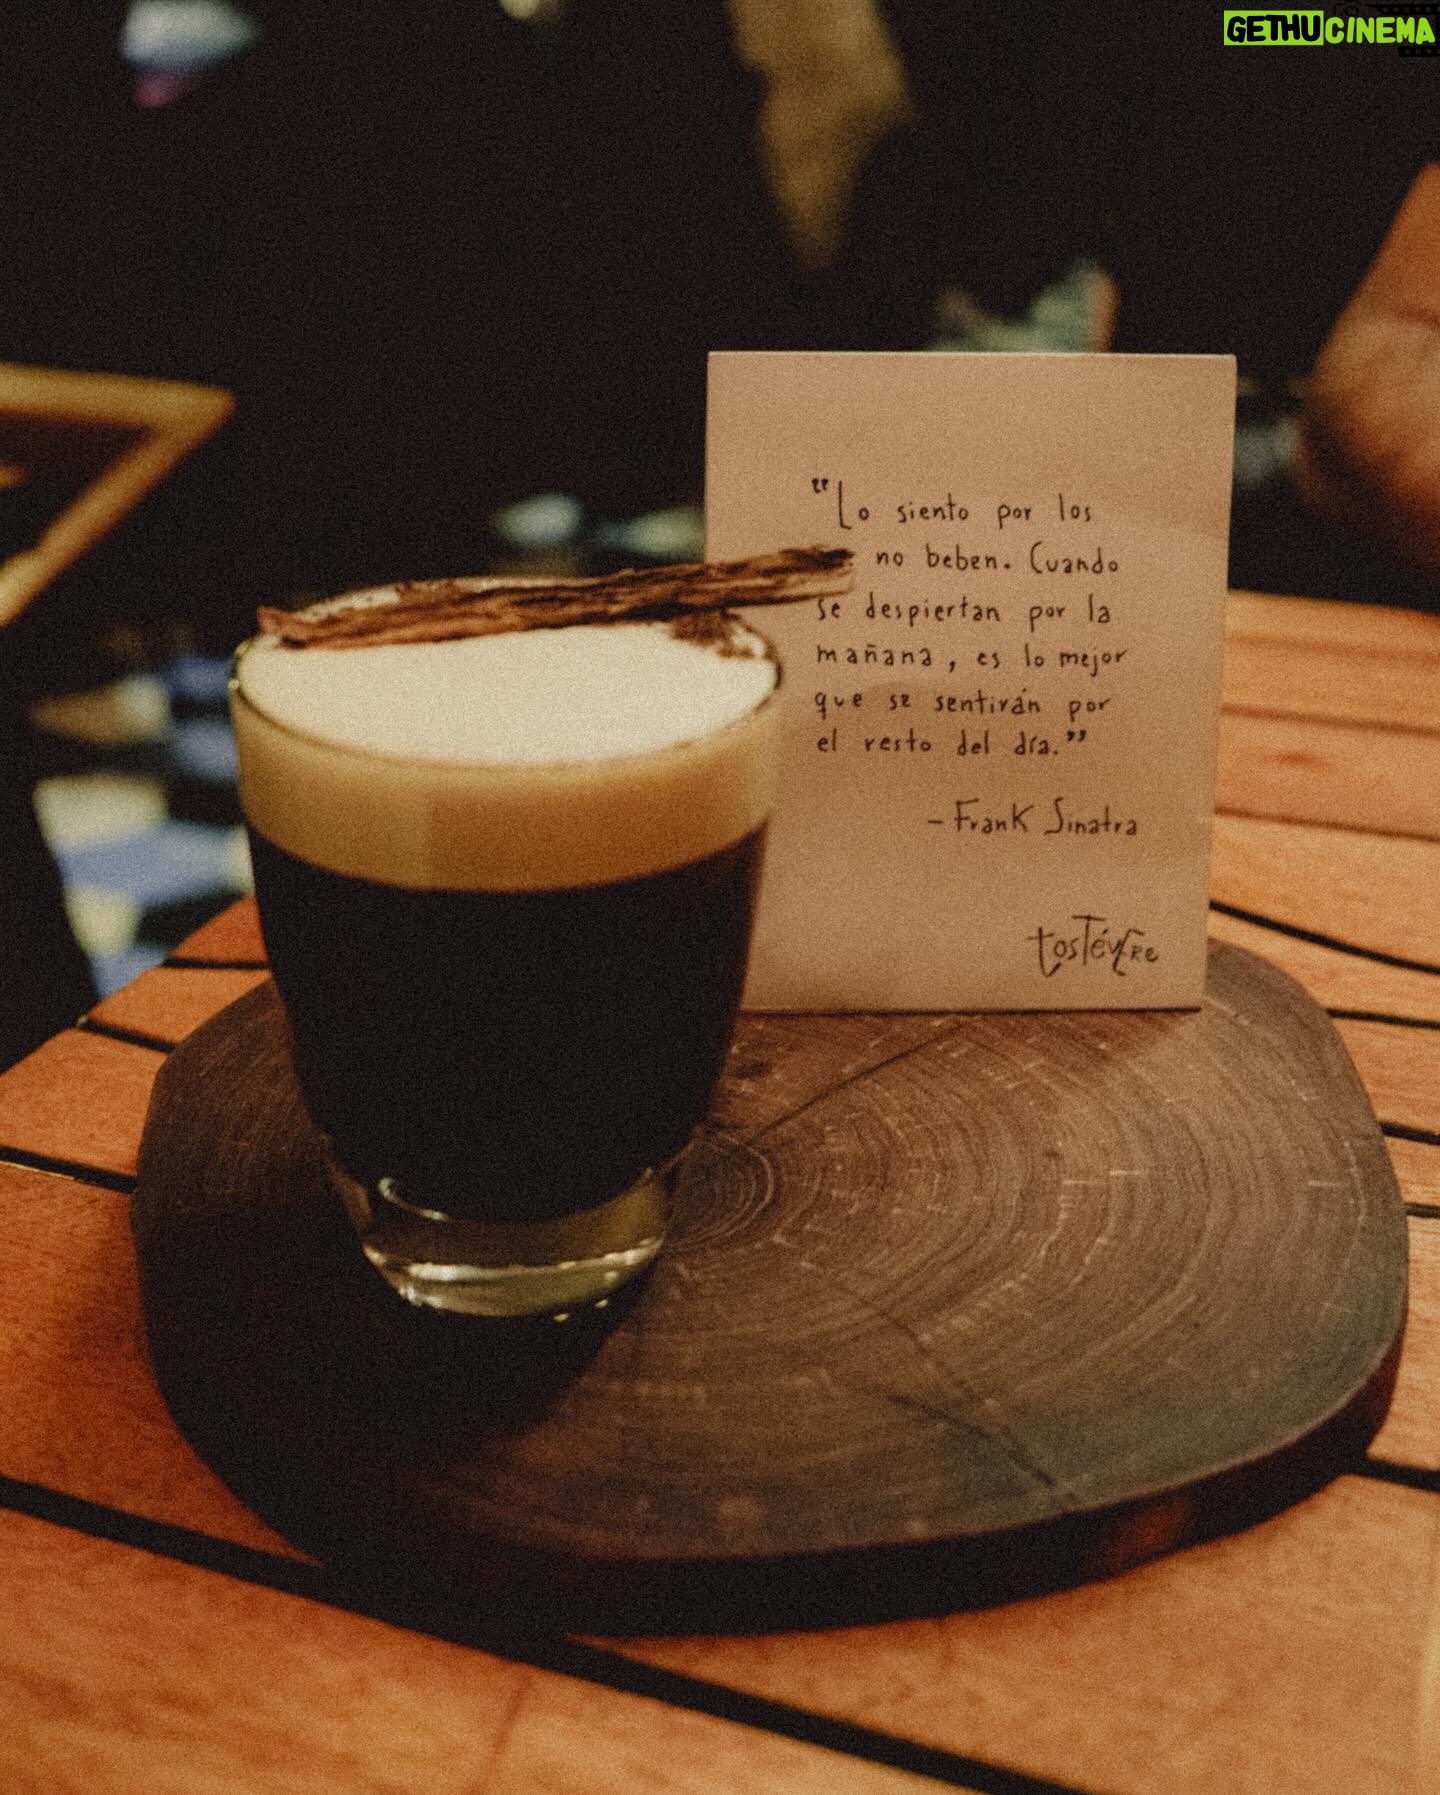 GETHUCINEMA
"Lo siento por los
no beben. Cuando
se despiertan por la
mañana, es lo mejor
que se sentirán por
el resto del día."
- Frank Sinatra